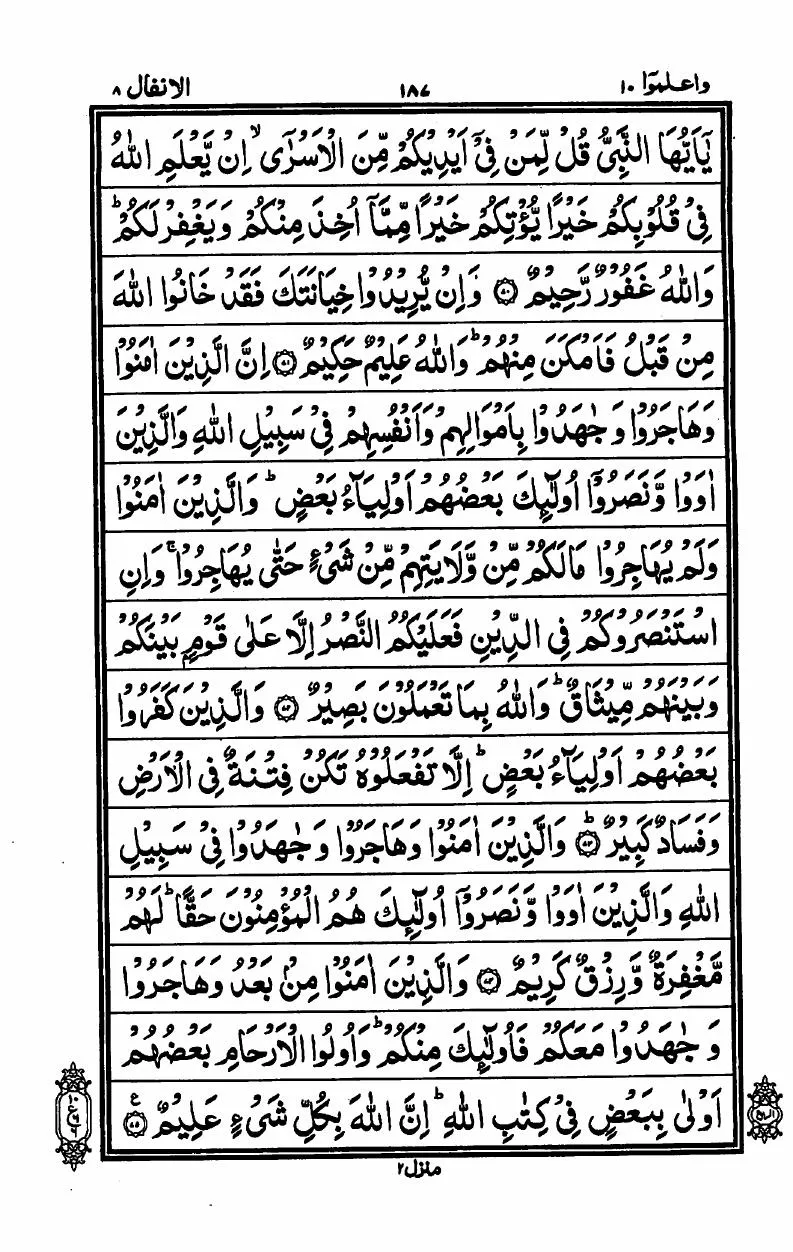 الانفال ٨ ١٨٧ واعلموا ١٠
يٰۤاَيُّهَا النَّبِيُّ قُلْ لِّمَنْ فِيْۤ اَيْدِيْكُمْ مِّنَ الْاَسْرٰۤى ۙ اِنْ يَّعْلَمِ اللّٰهُ
فِيْ قُلُوْبِكُمْ خَيْرًا يُّؤْتِكُمْ خَيْرًا مِّمَّاۤ اُخِذَ مِنْكُمْ وَيَغْفِرْ لَكُمْ ؕ
وَاللّٰهُ غَفُوْرٌ رَّحِيْمٌ ۝۷۰ وَاِنْ يُّرِيْدُوْا خِيَانَتَكَ فَقَدْ خَانُوا اللّٰهَ
مِنْ قَبْلُ فَاَمْكَنَ مِنْهُمْ ؕ وَاللّٰهُ عَلِيْمٌ حَكِيْمٌ ۝۷۱ اِنَّ الَّذِيْنَ اٰمَنُوْا
وَهَاجَرُوْا وَجٰهَدُوْا بِاَمْوَالِهِمْ وَاَنْفُسِهِمْ فِيْ سَبِيْلِ اللّٰهِ وَالَّذِيْنَ
اٰوَوْا وَّنَصَرُوْۤا اُولٰٓئِكَ بَعْضُهُمْ اَوْلِيَآءُ بَعْضٍ ؕ وَالَّذِيْنَ اٰمَنُوْا
وَلَمْ يُهَاجِرُوْا مَا لَكُمْ مِّنْ وَّلَايَتِهِمْ مِّنْ شَيْءٍ حَتّٰى يُهَاجِرُوْا ۚ وَاِنِ
اسْتَنْصَرُوْكُمْ فِي الدِّيْنِ فَعَلَيْكُمُ النَّصْرُ اِلَّا عَلٰى قَوْمٍۭ بَيْنَكُمْ
وَبَيْنَهُمْ مِّيْثَاقٌ ؕ وَاللّٰهُ بِمَا تَعْمَلُوْنَ بَصِيْرٌ ۝۷۲ وَالَّذِيْنَ كَفَرُوْا
بَعْضُهُمْ اَوْلِيَآءُ بَعْضٍ ؕ اِلَّا تَفْعَلُوْهُ تَكُنْ فِتْنَةٌ فِي الْاَرْضِ
وَفَسَادٌ كَبِيْرٌ ؕ۝۷۳ وَالَّذِيْنَ اٰمَنُوْا وَهَاجَرُوْا وَجٰهَدُوْا فِيْ سَبِيْلِ
اللّٰهِ وَالَّذِيْنَ اٰوَوْا وَّنَصَرُوْۤا اُولٰٓئِكَ هُمُ الْمُؤْمِنُوْنَ حَقًّا ؕ لَهُمْ
مَّغْفِرَةٌ وَّرِزْقٌ كَرِيْمٌ ۝۷۴ وَالَّذِيْنَ اٰمَنُوْا مِنْۢ بَعْدُ وَهَاجَرُوْا
وَجٰهَدُوْا مَعَكُمْ فَاُولٰٓئِكَ مِنْكُمْ ؕ وَاُولُوا الْاَرْحَامِ بَعْضُهُمْ
اَوْلٰى بِبَعْضٍ فِيْ كِتٰبِ اللّٰهِ ؕ اِنَّ اللّٰهَ بِكُلِّ شَيْءٍ عَلِيْمٌ ۝۷۵ ع
منزل ٢